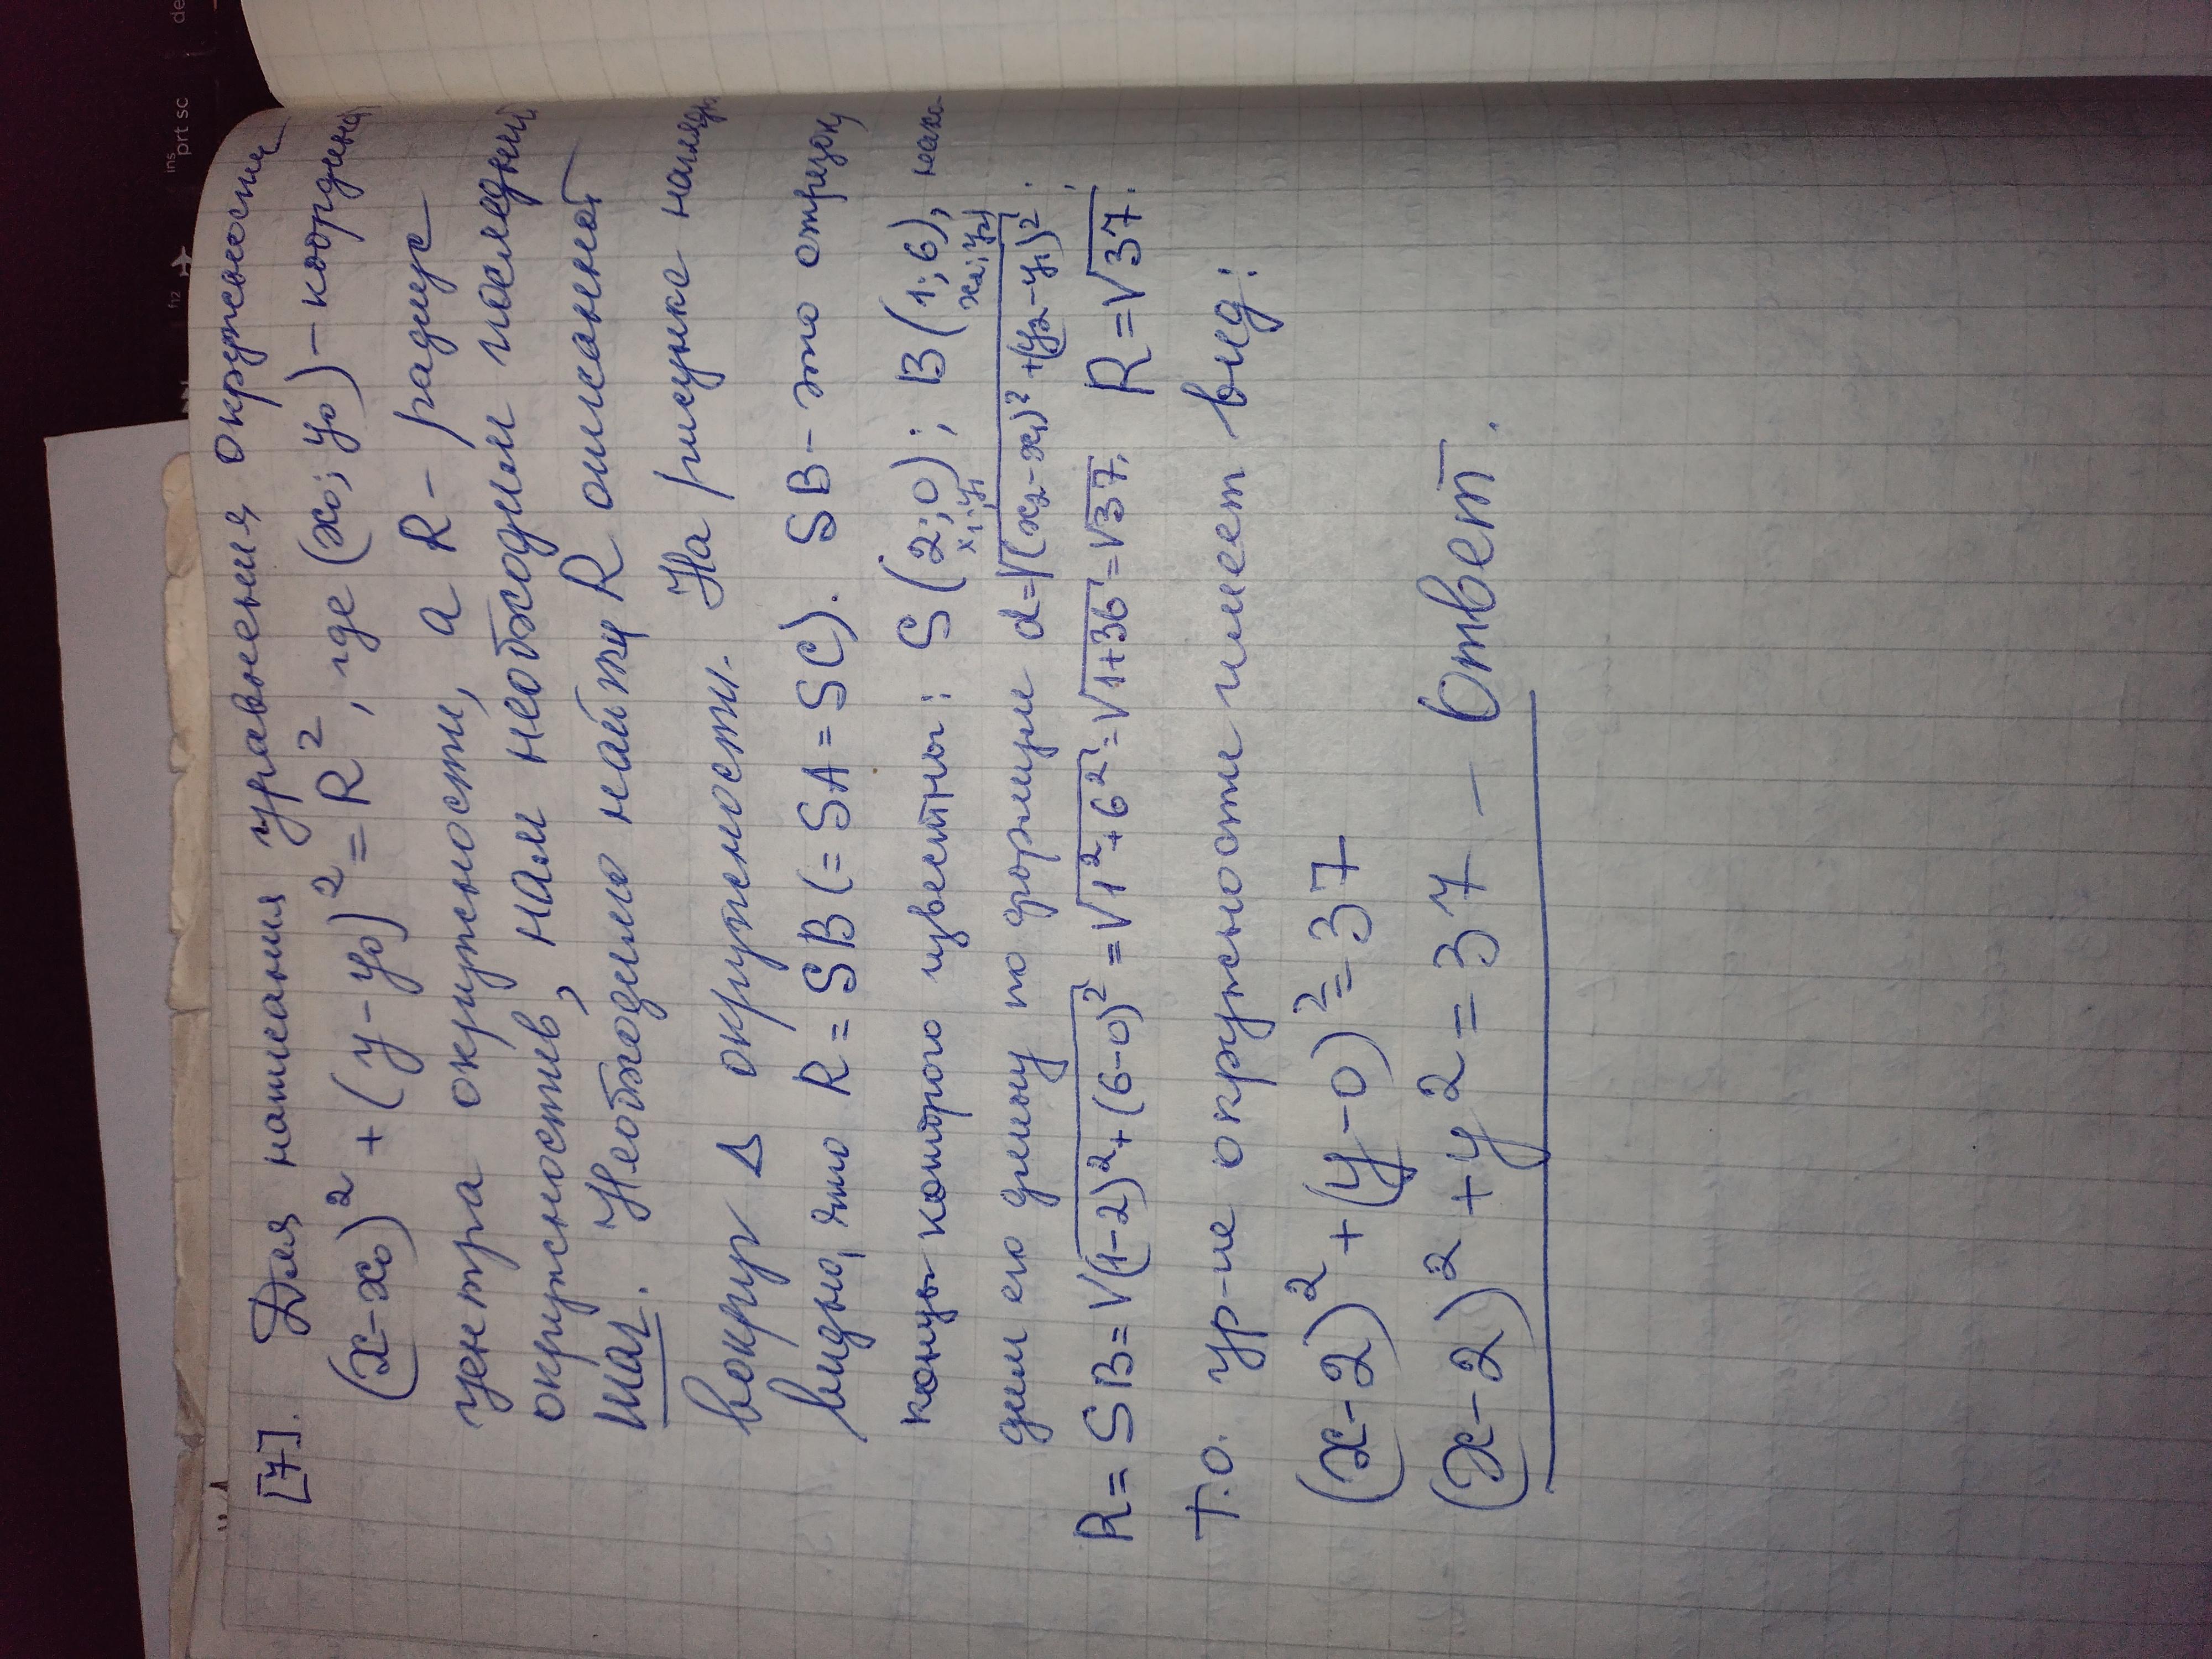 [7]. Для написания уравнения окружности
(x-x₀)² + (y-y₀)² = R², где (x₀; y₀) - координа
центра окружности, а R - радиус
окружности, нам необходим последний
шаг. Необходимо найти R описанной
вокруг Δ окружности. На рисунке нагляд
видно, что R = SB (= SA = SC). SB - это отрезок,
концы которого известны: S(2; 0); B(1; 6), нахо-
x₁; y₁ x₂; y₂
дим его длину по формуле d=√(x₂-x₁)²+(y₂-y₁)².
R = SB = √(1-2)²+(6-0)² = √1²+6² = √1+36 = √37. R = √37.
Т.о. ур-ие окружности имеет вид:
(x-2)² + (y-0)² = 37
(x-2)² + y² = 37 - Ответ.
prt sc
ins
f12